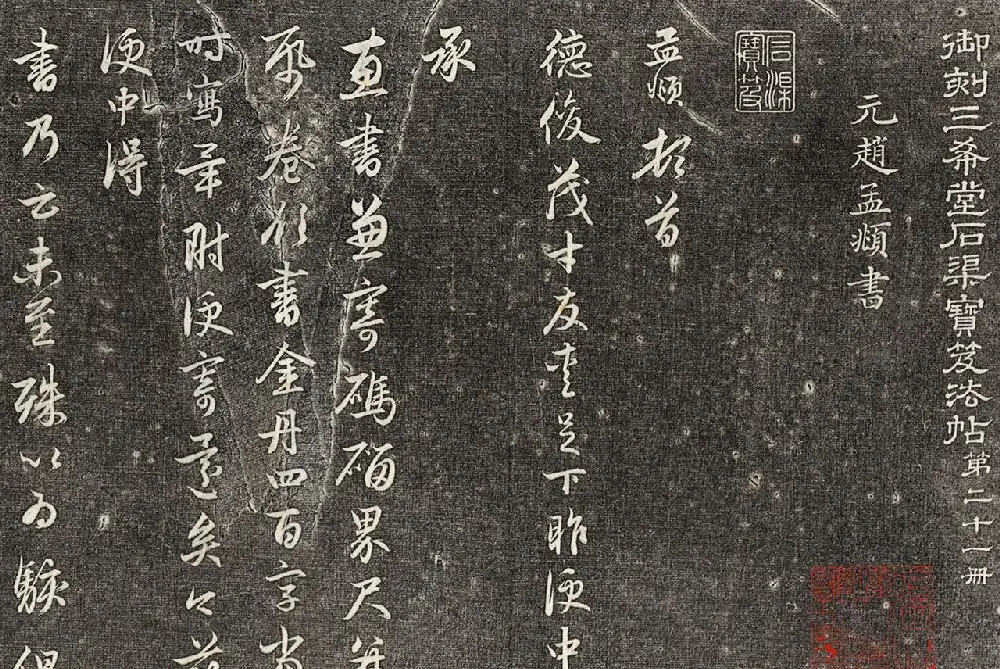 御刻三希堂石渠寶笈法帖第二十一冊
元趙孟頫書
石渠寶笈
孟頫頓首
德俊茂才友愛足下昨便中
承
惠書兼寄碼碯界尺并
紙卷欲書金丹四百字當
時寫畢附便寄還矣今茲
便中得
書乃云未至殊以為駭但